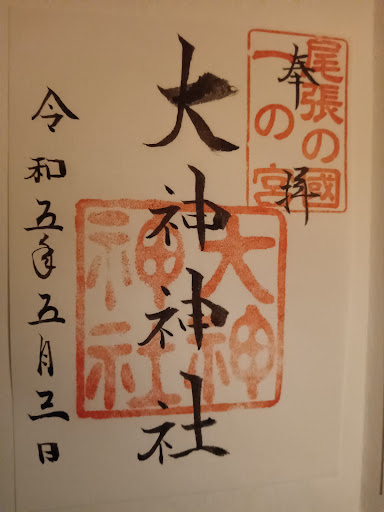 尾張の國
一の宮
奉拝
大神神社
大神
神社
令和五年五月三日